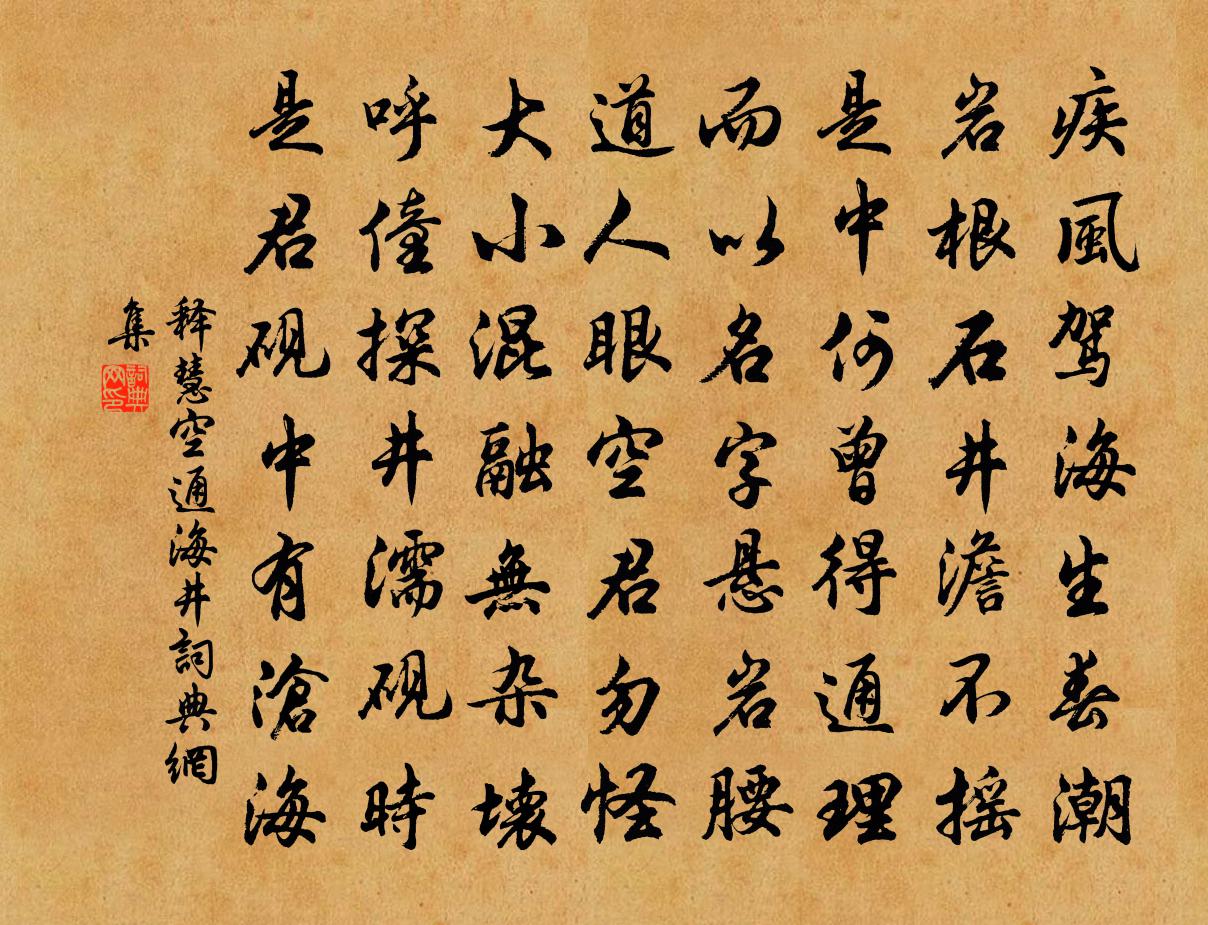 疾風駕海生春潮
岩根石井澹不摇
是中何曾得通理
而以名字悬岩腰
道人眼空君勿怪
大小混融無杂壊
呼僮探井濡硯時
是君硯中有滄海
释慧空通海井詞典網
集
詞典
网印